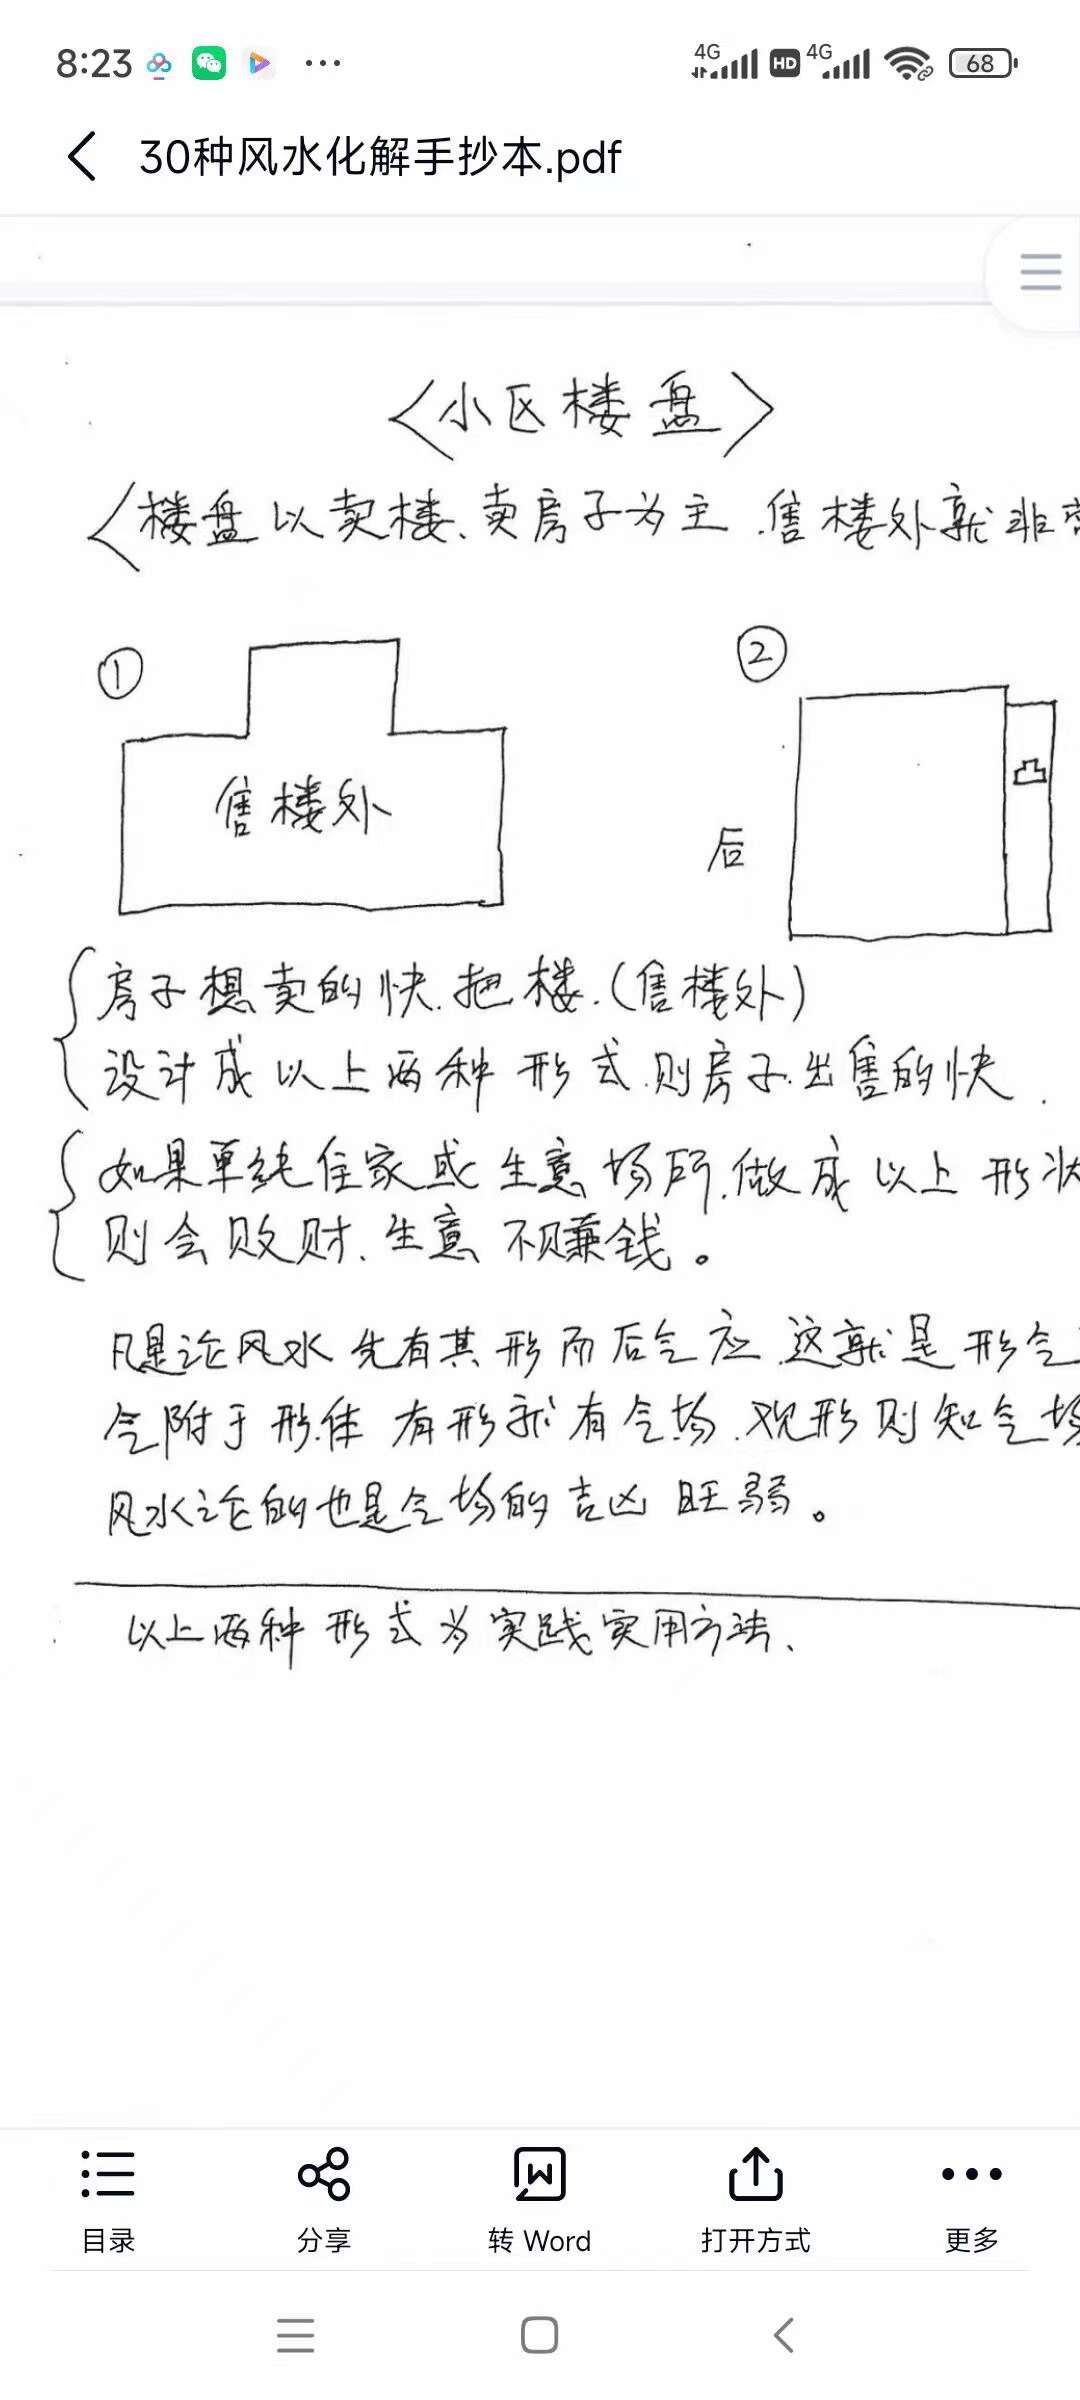 8:23 4G HD 4G 68
30种风水化解手抄本.pdf
〈小区楼盘〉
〈楼盘以卖楼、卖房子为主.售楼外就非
① ②
售楼外
凸
后
房子想卖的快.把楼.(售楼外)
设计成以上两种形式.则房子出售的快.
如果单纯住家或生意场所.做成以上形状
则会败财、生意不赚钱。
凡是论风水先有其形而后气应.这就是形气
气附于形体 有形就有气场.观形则知气场
风水论的也是气场的吉凶旺弱。
以上两种形式为实践实用方法、
目录 分享 转 Word 打开方式 更多